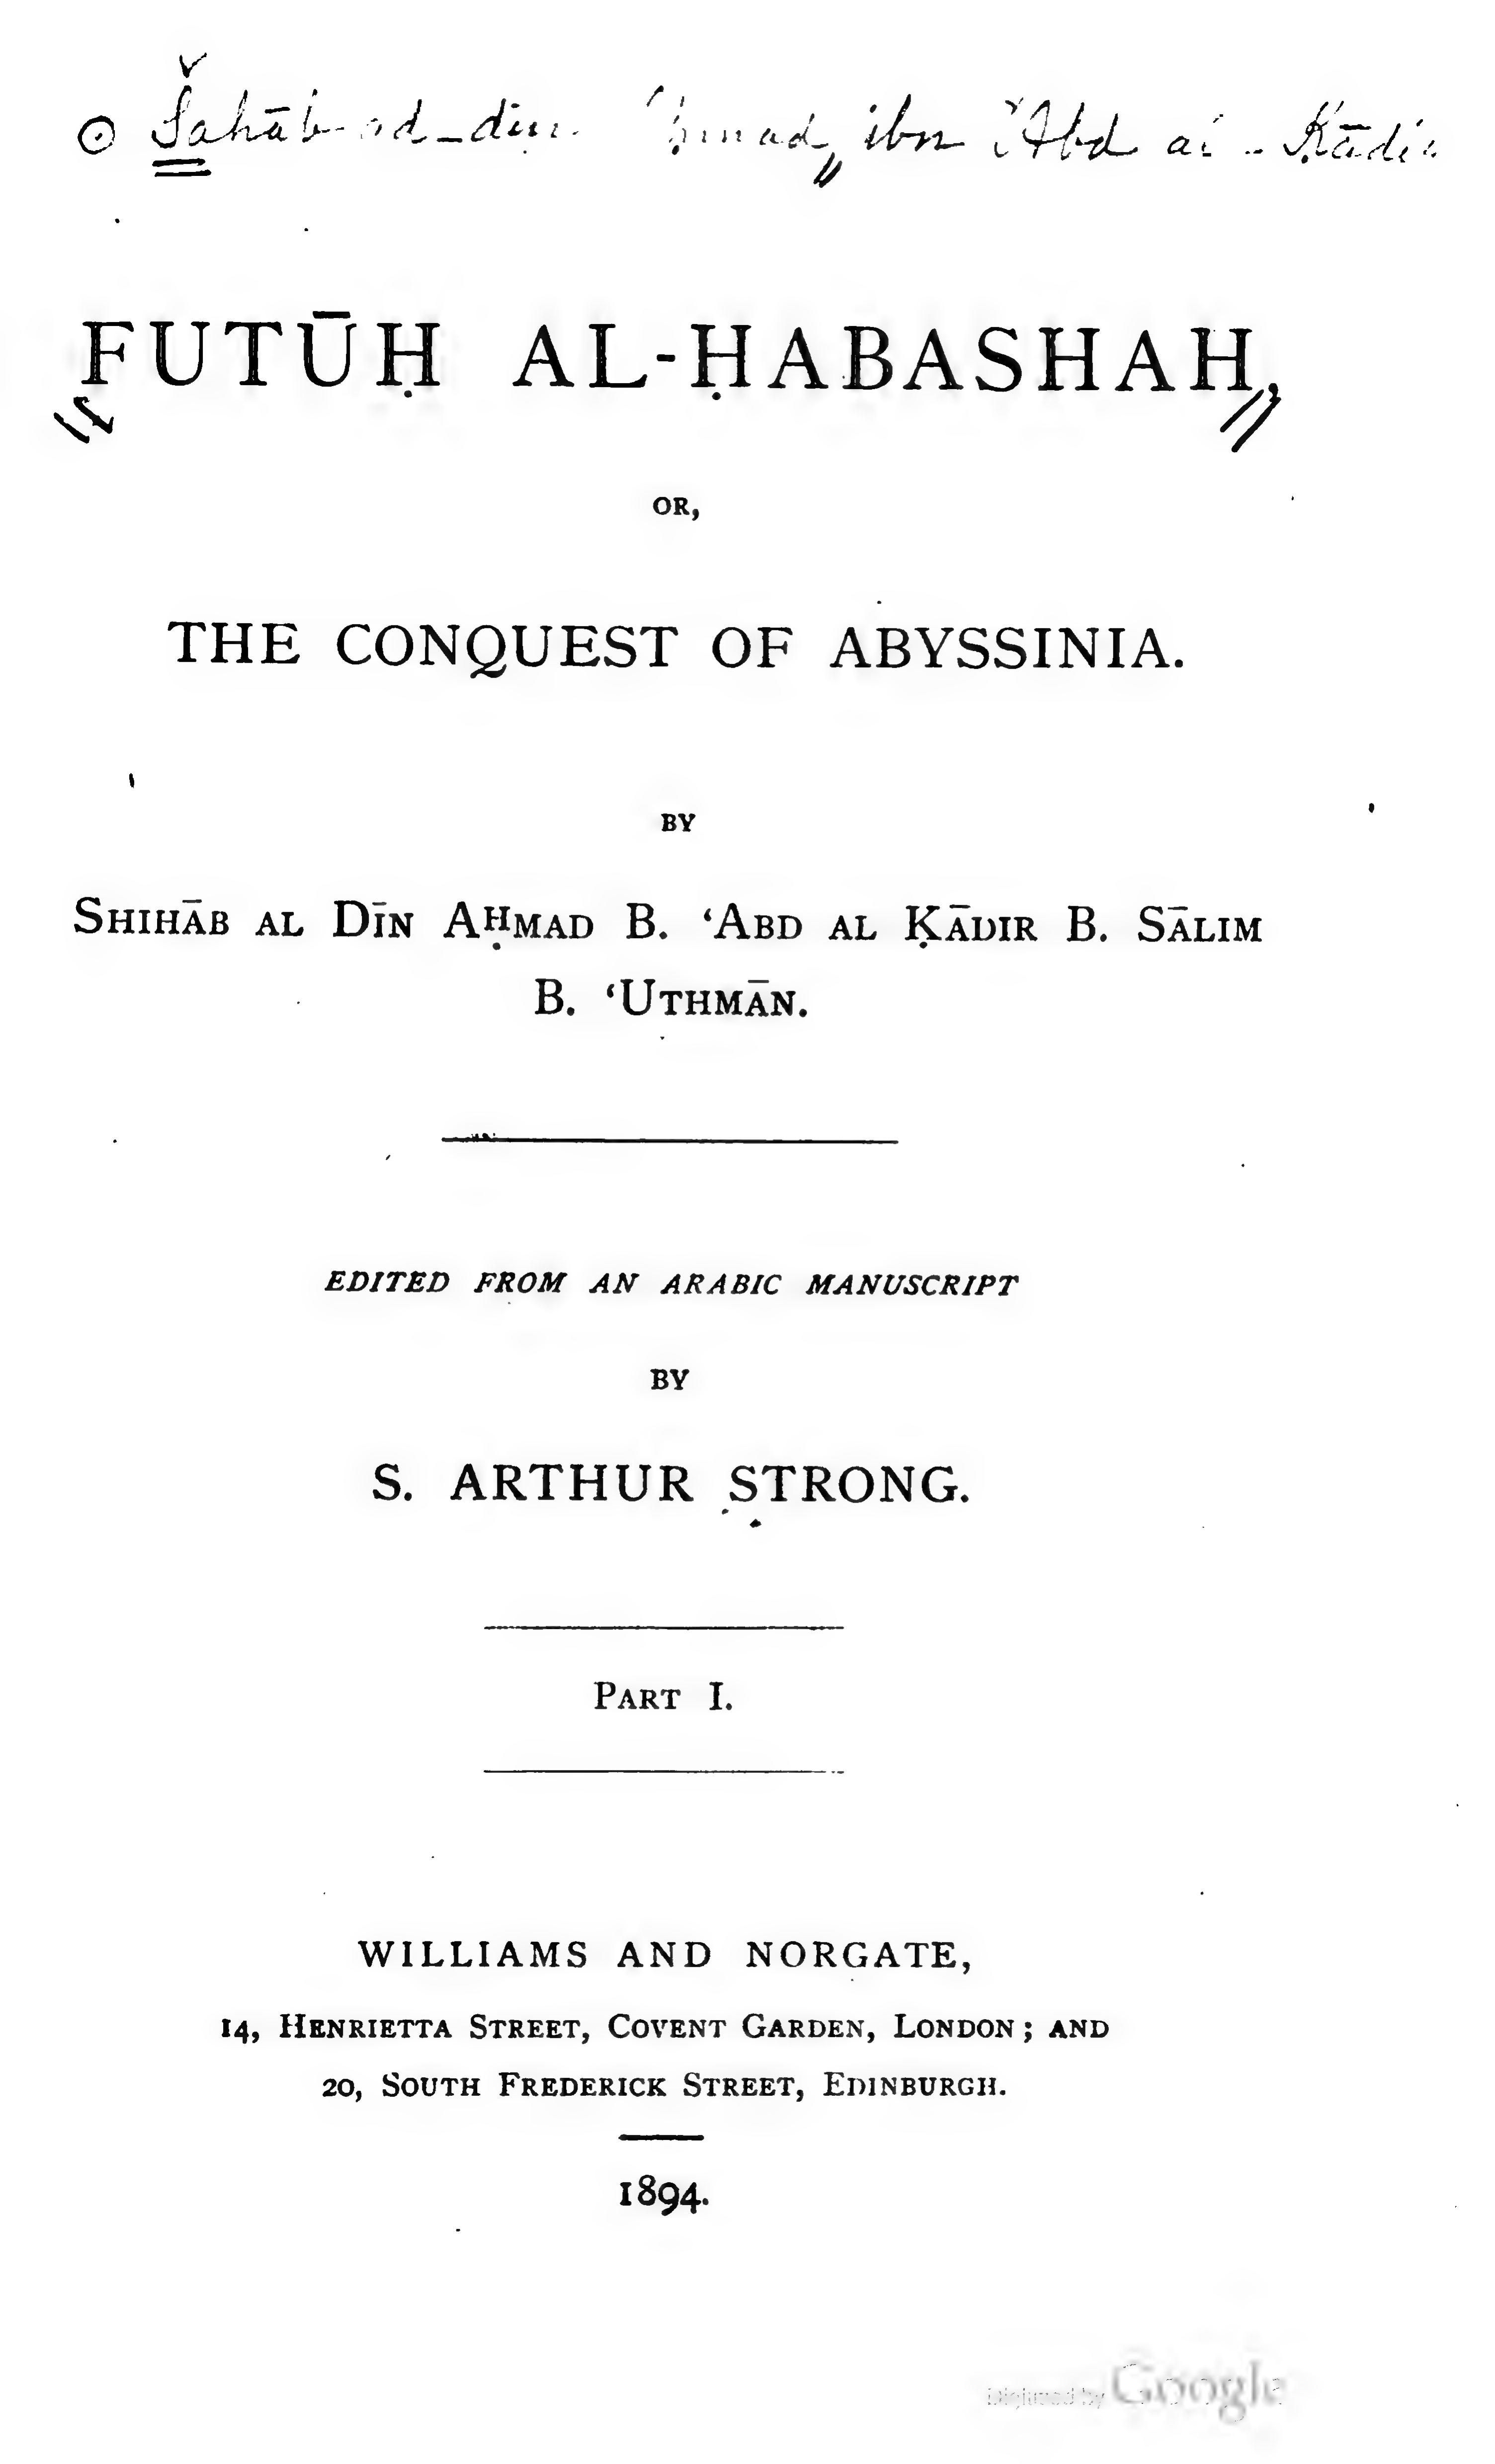 Šahāb ad-din ibn ʿAbd al-Ḳādir
FUTŪḤ AL-ḤABASHAH,
OR,
THE CONQUEST OF ABYSSINIA.
BY
SHIHĀB AL DĪN AḤMAD B. ‘ABD AL ḲĀDIR B. SĀLIM
B. ‘UTHMĀN.
EDITED FROM AN ARABIC MANUSCRIPT
BY
S. ARTHUR STRONG.
PART I.
WILLIAMS AND NORGATE,
14, HENRIETTA STREET, COVENT GARDEN, LONDON; AND
20, SOUTH FREDERICK STREET, EDINBURGH.
1894.
Digitized by Google